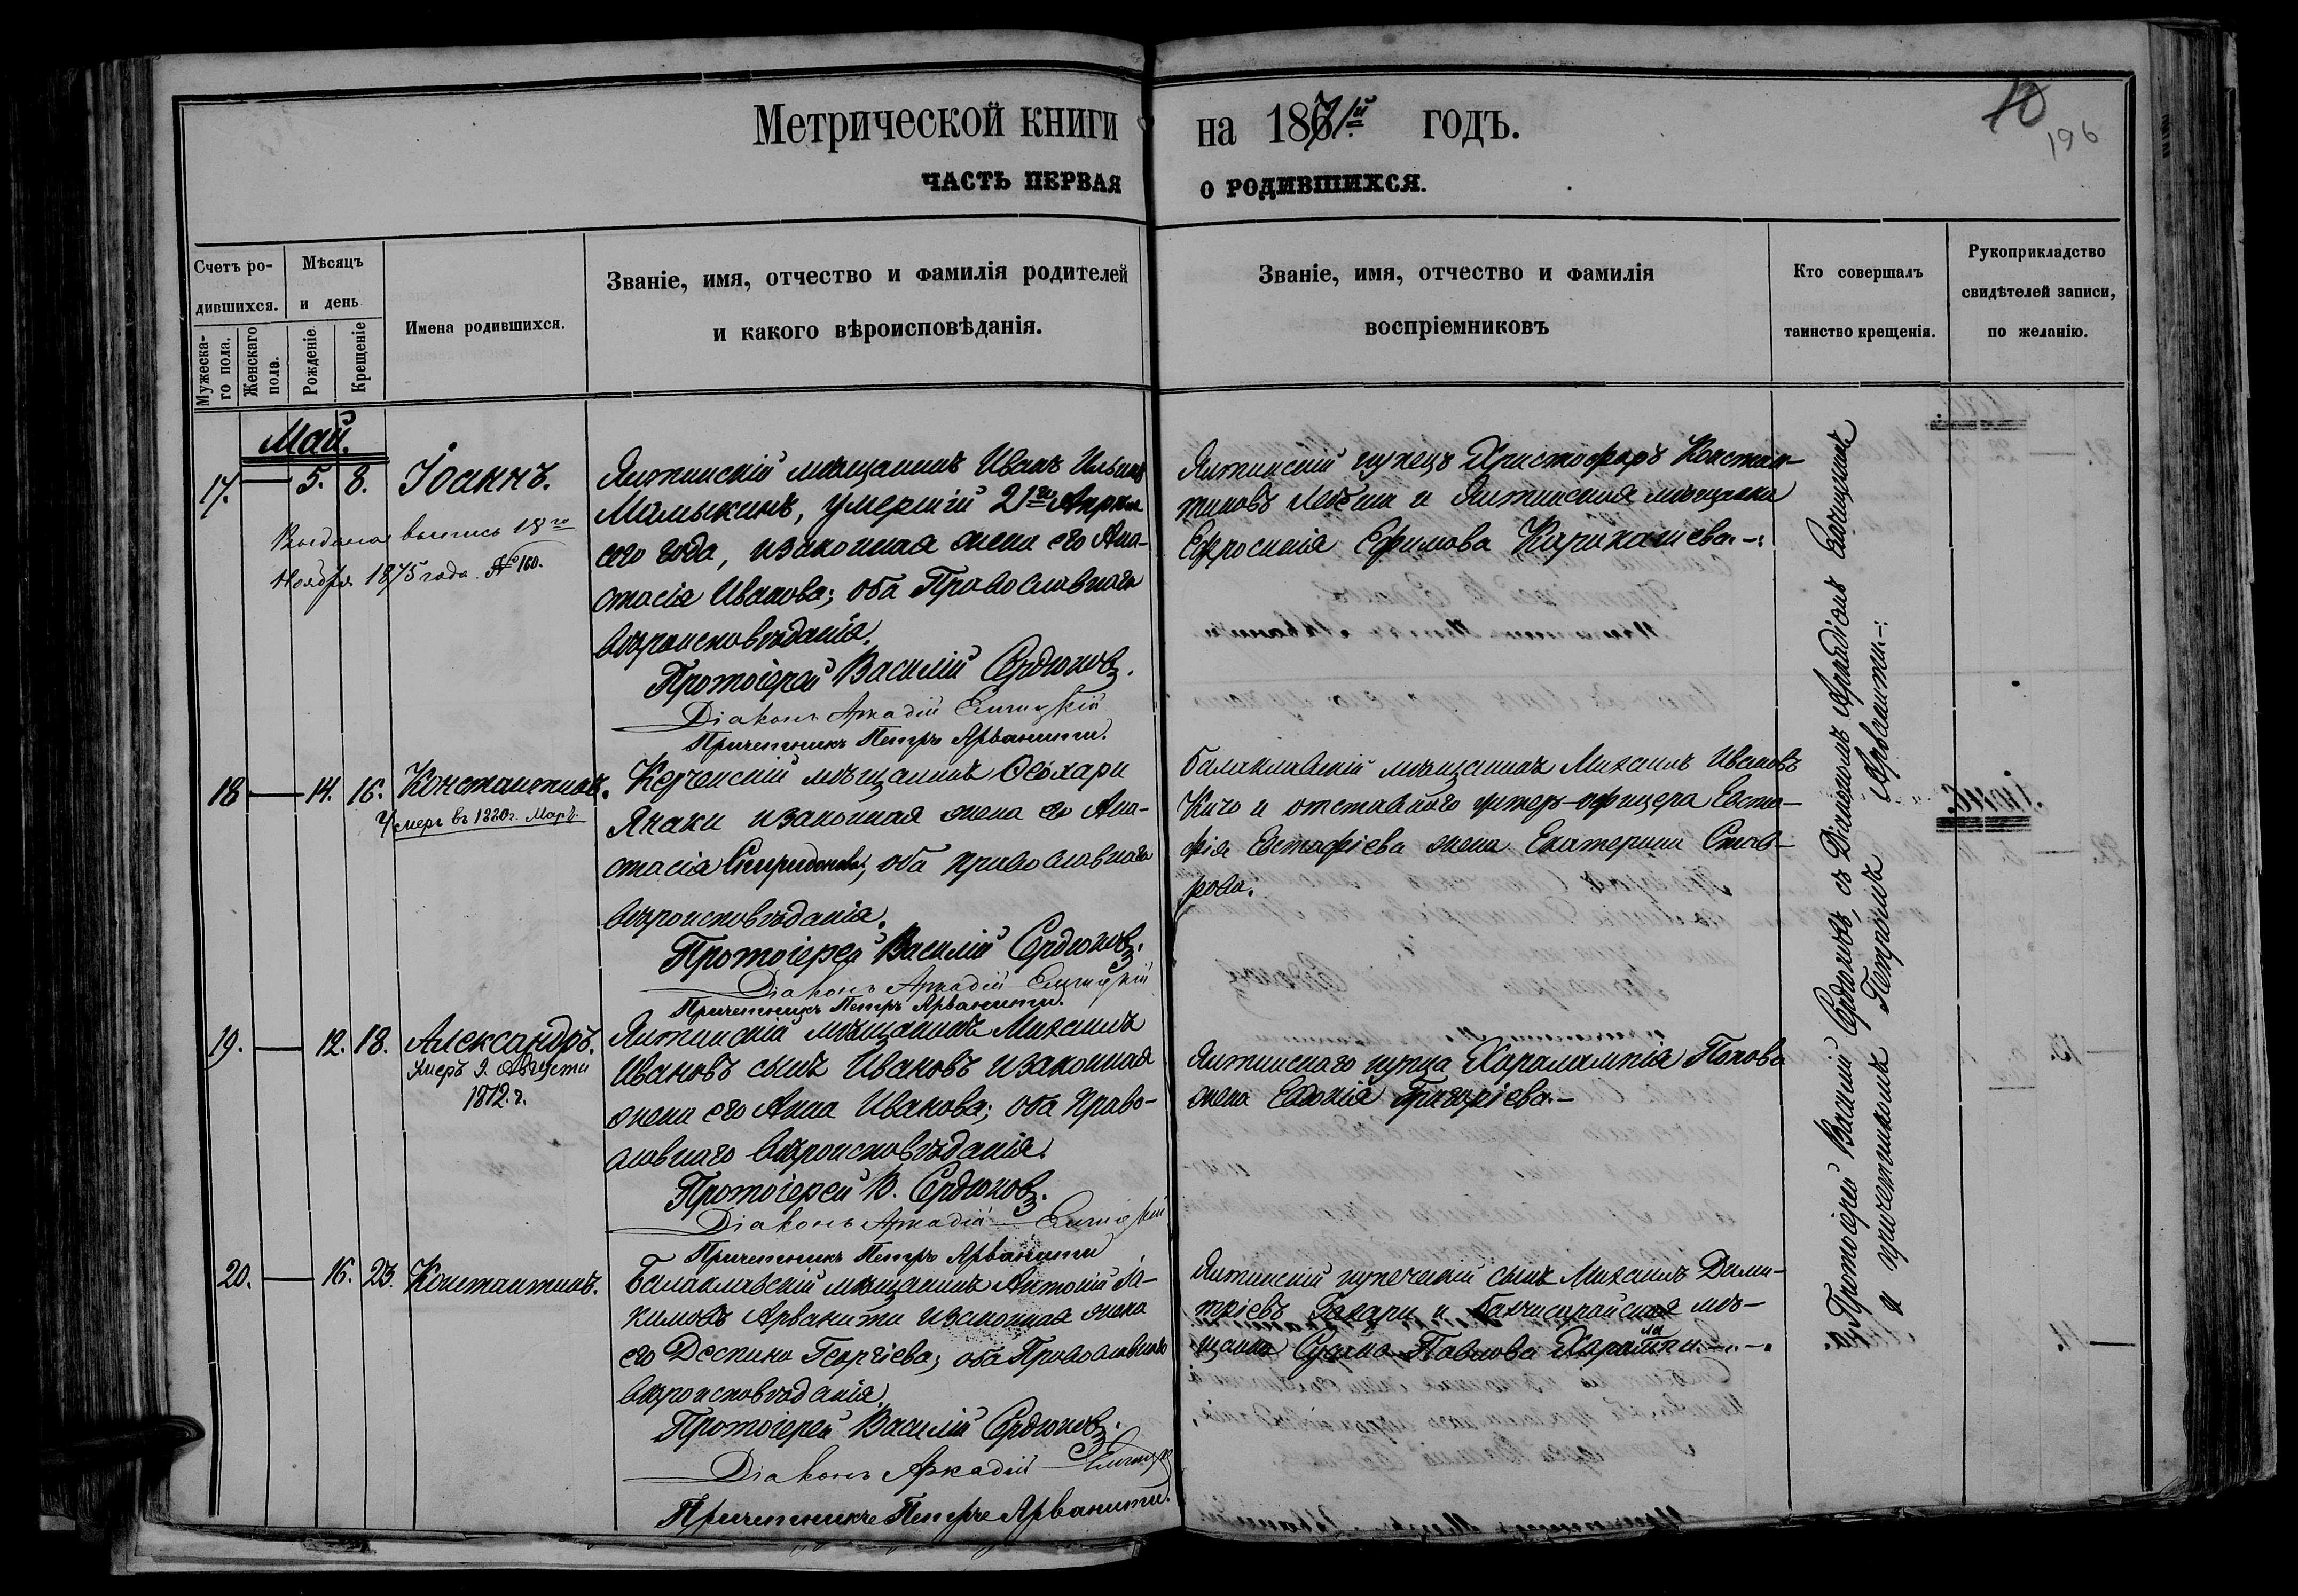 Метрической книги на 1871й годъ.
10
196
ЧАСТЬ ПЕРВАЯ О РОДИВШИХСЯ.
Счетъ ро-
дившихся.
Мужеска-
го пола.
Женскаго
пола.
Мѣсяцъ
и день
Рожденіе
Крещеніе
Имена родившихся.
Званіе, имя, отчество и фамилія родителей
и какого вѣроисповѣданія.
Званіе, имя, отчество и фамилія
воспріемниковъ
Кто совершалъ
таинство крещенія.
Рукоприкладство
свидѣтелей записи,
по желанію.
Май.
17. — 5. 8. Іоаннъ.
Выдана выпись 18го
Ноября 1875 года № 160.
Ялтинскій мѣщанинъ Иванъ Ильинъ
Малыкинъ, умершій 21го Апрѣля
сего года, и законная жена его Ана-
стасія Иванова; оба Православнаго
вѣроисповѣданія.
Протоіерей Василій Сердюковъ.
Діаконъ Аркадій
Причетникъ Петръ Арванити.
Ялтинскій купецъ Христофоръ Констан-
тиновъ и Ялтинская мѣщанка
Ефросинія Ефимова
18 — 14. 16. Константинъ.
Умеръ въ 1220г. Мартъ.
Керченскій мѣщанинъ Ѳеохари
Яхаки и законная жена его Ана-
стасія Спиридонова; оба православнаго
вѣроисповѣданія.
Протоіерей Василій Сердюковъ.
Діаконъ Аркадій
Причетникъ Петръ Арванити.
Балаклавскій мѣщанинъ Михаилъ Ивановъ
Кичо и отставнаго унтеръ-офицера Евста-
фія Евстафіева жена Екатерина Став-
рова.
19. — 12. 18. Александръ.
Умеръ 9. Августа
1872. г.
Ялтинскій мѣщанинъ Михаилъ
Ивановъ сынъ Ивановъ и законная
жена его Анна Иванова; оба право-
славнаго вѣроисповѣданія.
Протоіерей В. Сердюковъ.
Діаконъ Аркадій
Причетникъ Петръ Арванити
Ялтинскаго купца Харалампія Попова
жена Евдокія Григоріева.—
20. — 16. 23. Константинъ.
Балаклавскій мѣщанинъ Антоній Іа-
кимовъ Арванити и законная жена
его Деспина Георгіева; оба Православнаго
вѣроисповѣданія.
Протоіерей Василій Сердюковъ.
Діаконъ Аркадій
Причетникъ Петръ Арванити.
Ялтинскій купеческій сынъ Михаилъ Дими-
тріевъ Захари и Бахчисарайская мѣ-
щанка Сусана Павлова
Протоіерей Василій Сердюковъ, съ Діакономъ Аркадіемъ
и причетникомъ Петромъ Арванити.—